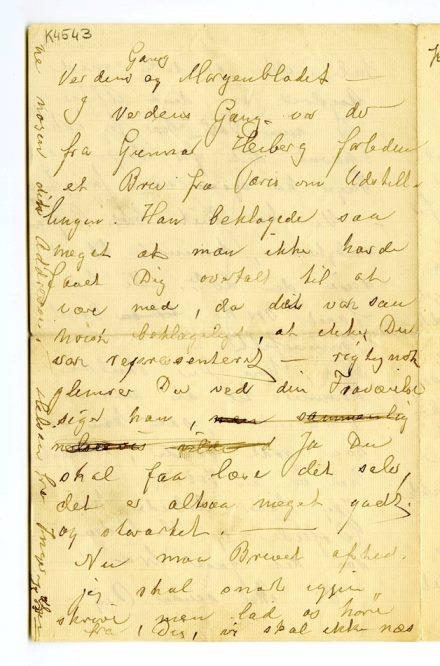 K4543
Gang
Verdens og Morgenbladet —
I Verdens Gang var der
fra Gunnar Heiberg forleden
et Brev fra Paris om Udstill-
lingen. Han beklagede saa
meget at man ikke havde
faaet Dig overtalt til at
være med, da det var saa
høist beklageligt, at ikke Du
var repræsenteret — rigtignok
glimrer Du ved din Fraværelse
siger han, Ja Du
skal faa læse det selv,
det er altsaa meget godt
og stærket. —
Nu maa Brevet afsted.
jeg skal snart igjen
skrive men lad os høre
fra Dig, vi skal ikke næs
din Addresse Hilsen fra Inger